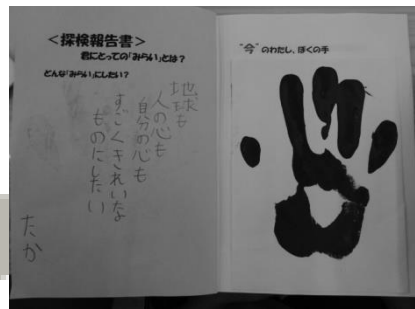 ＜探検報告書＞
君にとっての「みらい」とは？
どんな「みらい」にしたい？
地球も
人の心も
自分の心も
すごくきれいな
ものにしたい
たか
"今"のわたし、ぼくの手